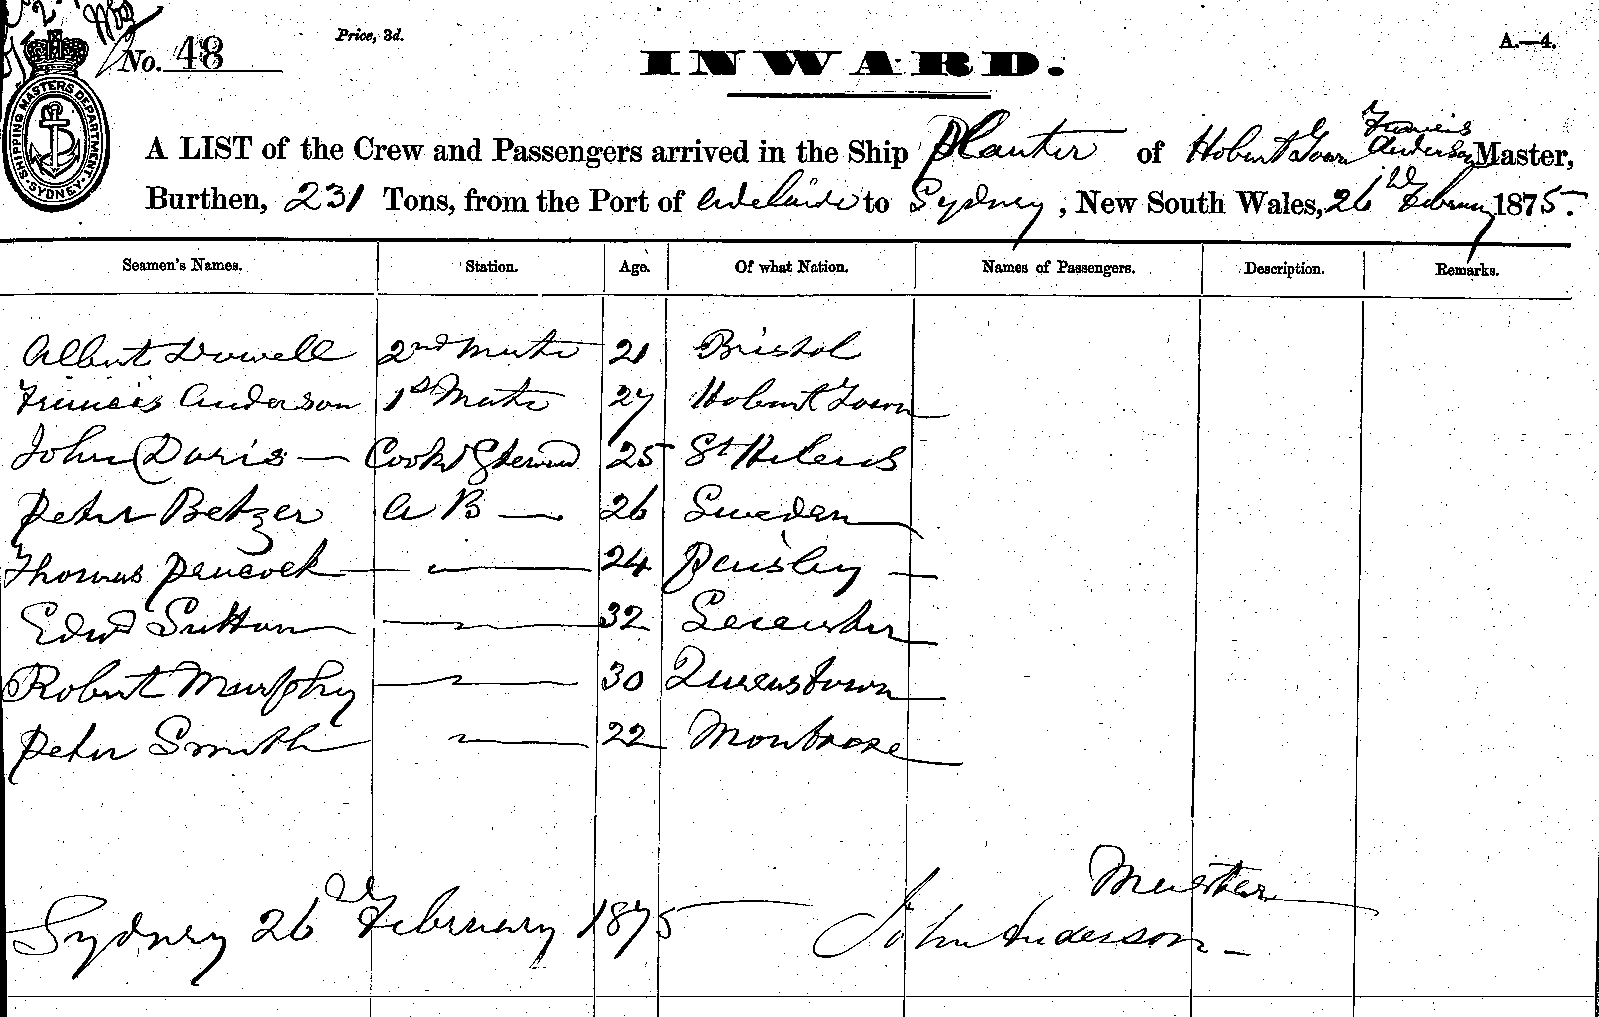 No. 48
Price, 3d.
INWARD.
A.—4.
SHIPPING MASTERS DEPARTMENT SYDNEY
A LIST of the Crew and Passengers arrived in the Ship Planter of Hobart Town Francis Anderson Master,
Burthen, 231 Tons, from the Port of Adelaide to Sydney, New South Wales, 26 February 1875.
Seamen's Names. Station. Age. Of what Nation. Names of Passengers. Description. Remarks.
Albert Dowell 2nd Mate 21 Bristol
Francis Anderson 1st Mate 27 Hobart Town
John Davis — Cook & Steward 25 St Helens
Peter Betzer A B — 26 Sweden
Thomas Peacock — 24 Paisley —
Edwd Sutton — 32 Leicester
Robert Murphy — 30 Queenstown
Peter Smith — 22 Montrose
Master
Sydney 26 February 1875 John Anderson —